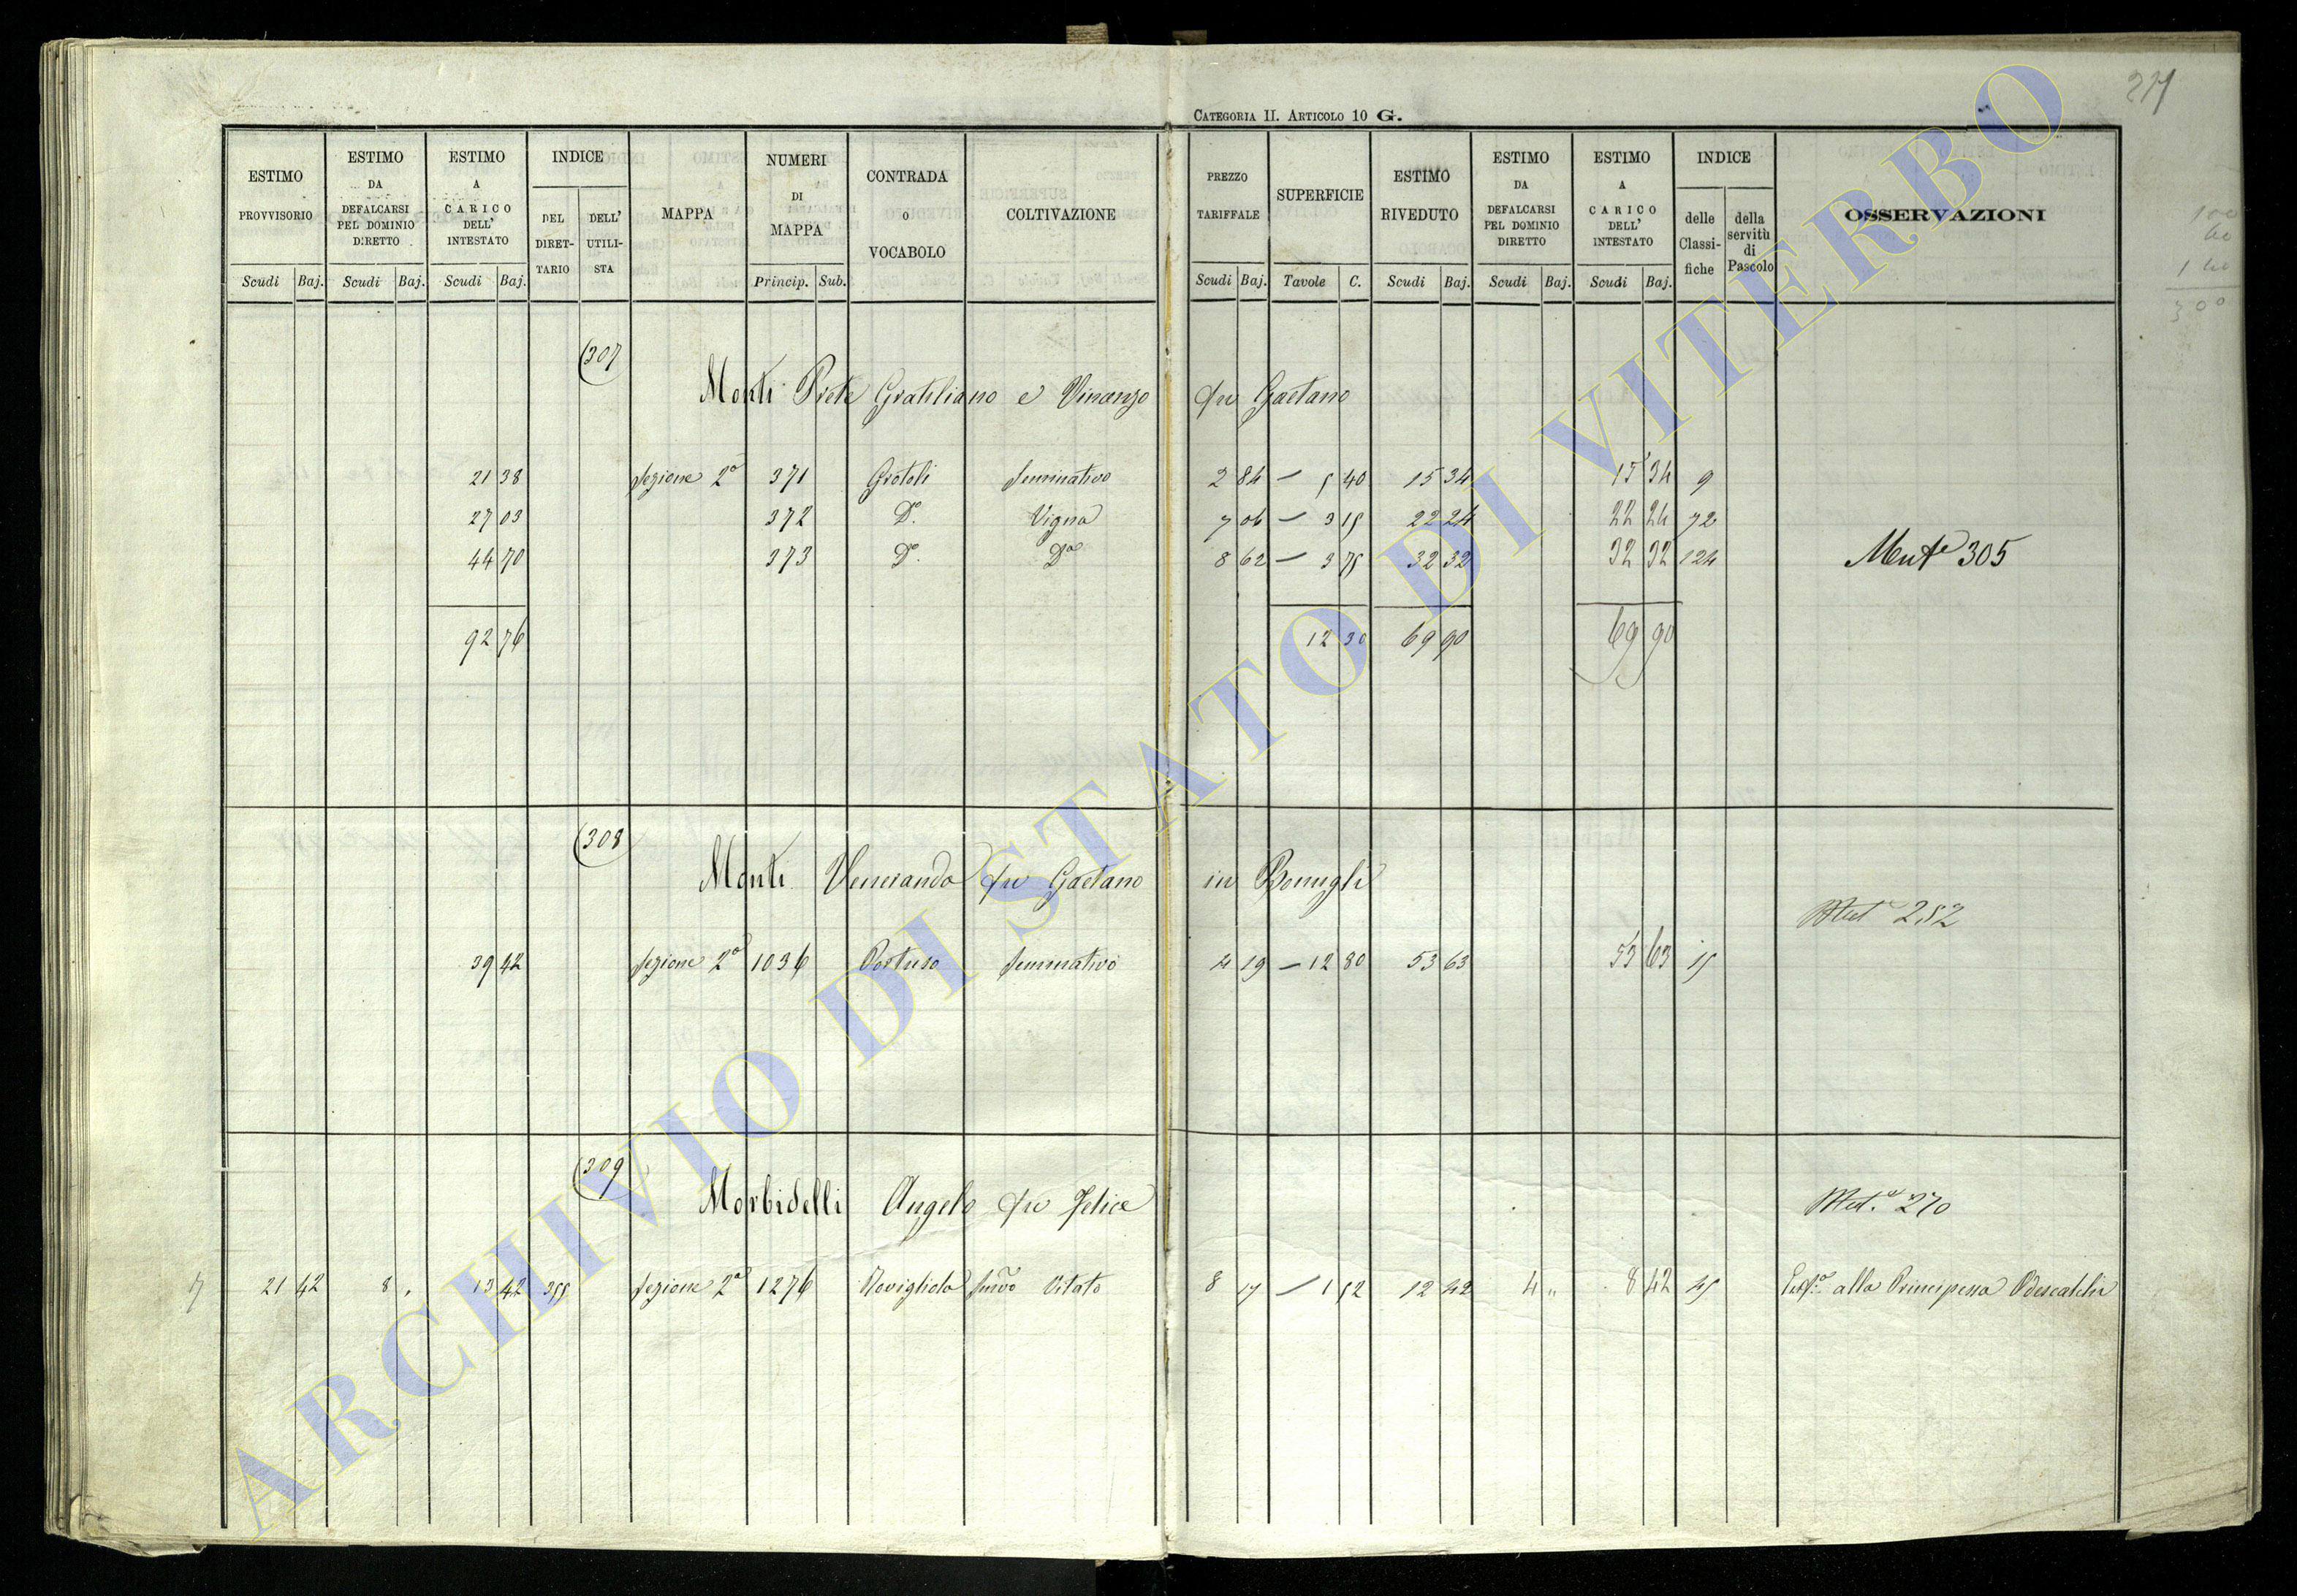 Categoria II. Articolo 10 G.
ESTIMO PROVVISORIO
ESTIMO DA DEFALCARSI PEL DOMINIO DIRETTO
ESTIMO A CARICO DELL' INTESTATO
INDICE
DEL DIRETTARIO
DELL' UTILISTA
MAPPA
NUMERI DI MAPPA
CONTRADA O VOCABOLO
COLTIVAZIONE
PREZZO TARIFFALE
SUPERFICIE
ESTIMO RIVEDUTO
ESTIMO DA DEFALCARSI PEL DOMINIO DIRETTO
ESTIMO A CARICO DELL' INTESTATO
INDICE
delle Classifiche
della servitù di Pascolo
OSSERVAZIONI
Scudi Baj. Scudi Baj. Scudi Baj. Princip. Sub. Scudi Baj. Tavole C. Scudi Baj. Scudi Baj. Scudi Baj.
100
60
140
300
307
Monti Prete Gratiliano e Vinanzo fu Gaetano
21 38 Sezione 2a 371 Grotoli Seminativo 2 84 — 5 40 15 34 15 34 9
27 03 372 Do. Vigna 7 06 — 3 15 22 24 22 24 72
44 70 373 Do. Da 8 62 — 3 75 32 32 32 32 124 Mut.e 305
92 76 12 30 69 90 69 90
308
Monti Veneranda fu Gaetano in Bonugli
Mut.e 252
39 42 Sezione 2a 1036 Portuso Seminativo 4 19 — 12 80 53 63 53 63 15
309
Morbidelli Angelo fu Felice
Mut.e 270
7 21 42 8 " 13 42 355 Sezione 2a 1276 Rovigliola Semvo Vitato 8 17 — 1 52 12 42 4 " 8 42 45 alla Principessa Odescalchi
ARCHIVIO DI STATO DI VITERBO